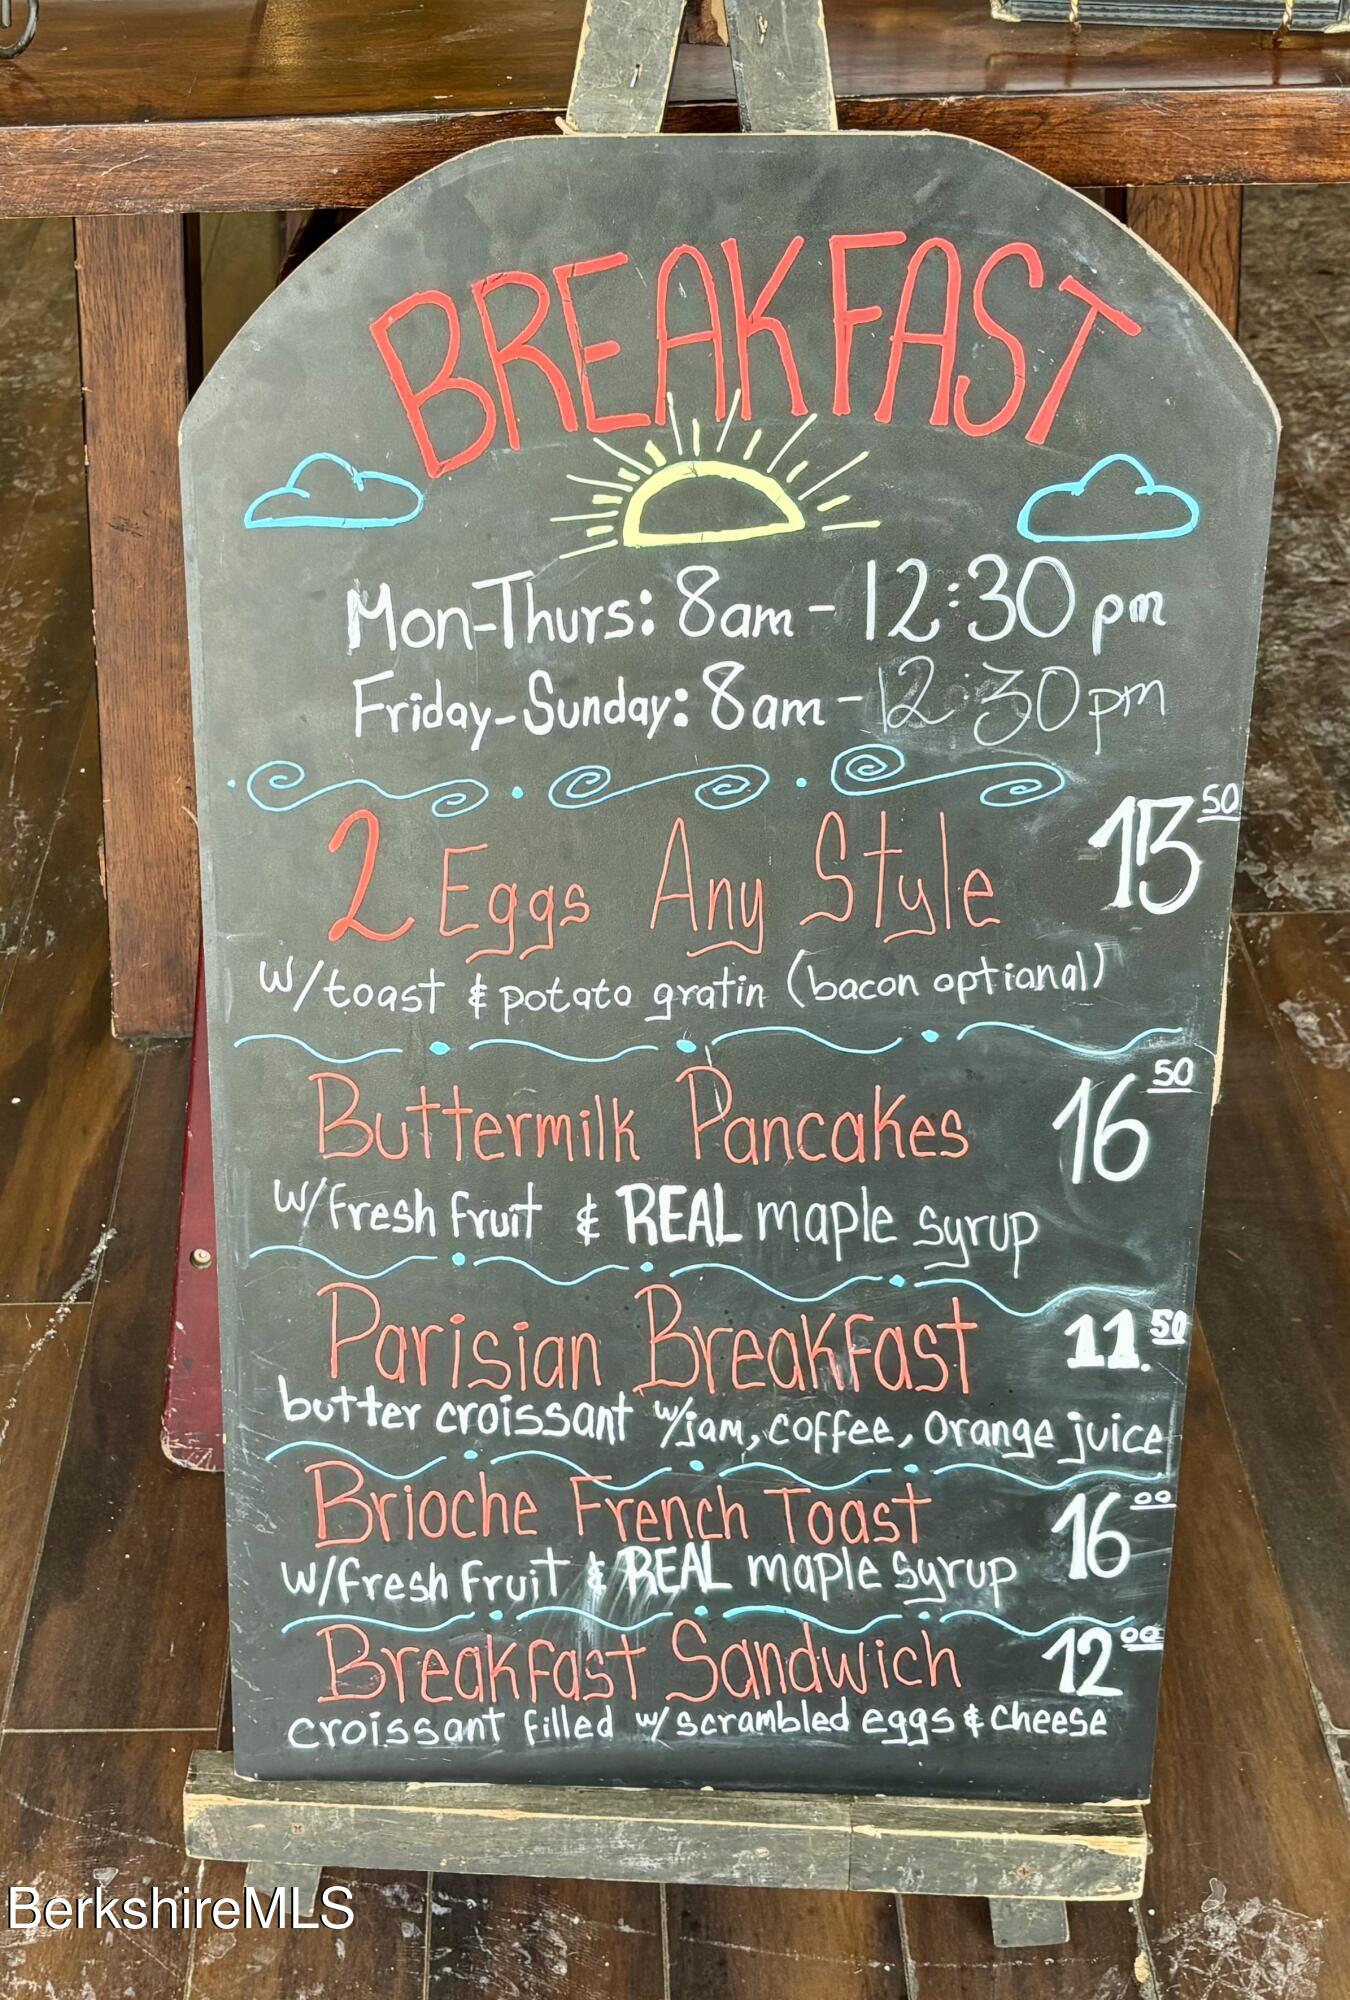 BREAKFAST
Mon-Thurs: 8am - 12:30 pm
Friday-Sunday: 8am - 12:30pm
2 Eggs Any Style 50
w/toast & potato gratin (bacon optional)
Buttermilk Pancakes 16 50
w/fresh fruit & REAL maple syrup
Parisian Breakfast 11. 50
butter croissant w/jam, coffee, orange juice
Brioche French Toast 16 00
w/fresh fruit & REAL maple syrup
Breakfast Sandwich 12 00
croissant filled w/scrambled eggs & cheese
BerkshireMLS